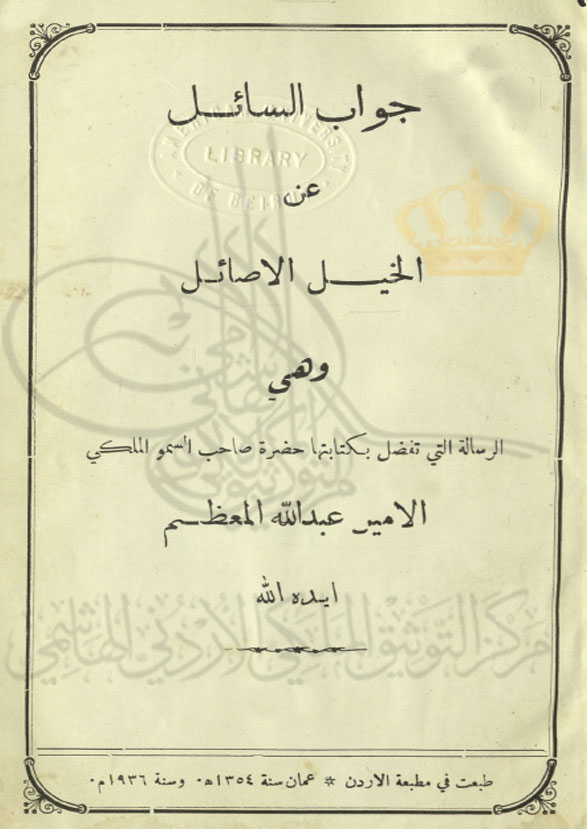 جواب السائل
عن
الخيل الاصائل
وهي
الرسالة التي تفضل بكتابتها حضرة صاحب السمو الملكي
الامير عبدالله المعظم
ايده الله
طبعت في مطبعة الاردن * عمان سنة ١٣٥٤هـ٠ وسنة ١٩٣٦م٠
LIBRARY
مركز التوثيق الملكي الاردني الهاشمي